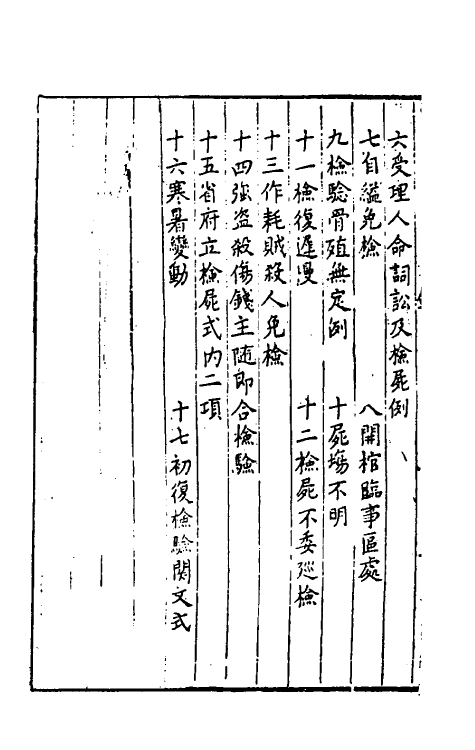 六受理人命詞訟及檢屍例
七自縊免檢　八開棺臨事區處
九檢驗骨殖無定例　十屍塲不明
十一檢復遲慢　十二檢屍不委巡檢
十三作耗賊殺人免檢
十四強盗殺傷錢主随即合檢驗
十五省府立檢屍式内二項
十六寒暑變動　十七初復檢驗関文式